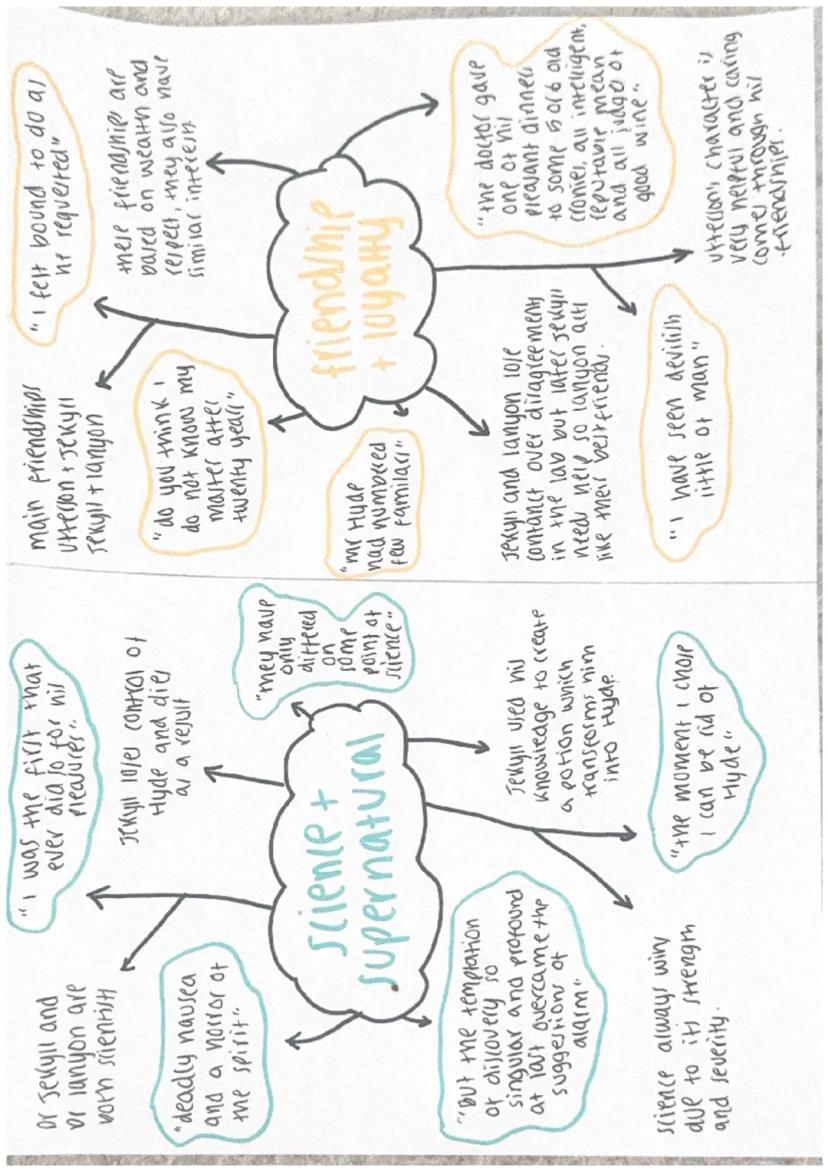 Dr Jekyll and
Dr lanyon are
both scientists
"I was the first that
ever did so for his
pleasures".
Jekyll loses control of
Hyde and dies
as a result
"they have
only
differed
on
some
point of
science"
"deadly nausea
and a horror of
the spirit"
science +
supernatural
"but the temptation
of discovery so
singular and profound
at last overcame the
suggestions of
alarm"
Jekyll used his
knowledge to create
a potion which
transforms him
into Hyde.
science always wins
due to its strength
and severity.
"the moment I chose
I can be rid of
Hyde"
main friendships
utterson + Jekyll
Jekyll + lanyon
"I felt bound to do as
he requested"
these friendships are
based on wealth and
respect, they also have
similar interests
"do you think I
do not know my
master after
twenty years"
friendship
+ loyalty
"the doctor gave
one of his
pleasant dinners
to some 5 or 6 old
cronies, all intelligent,
reputable mean
and all judges of
good wine"
"mr Hyde
had numbered
few familars"
Jekyll and lanyon lose
contanct over disagreement
in the lab but later Jekyll
needs help so lanyon acts
like their bestfriends.
utterson's character is
very helpful and caring
comes through his
friendships.
"I have seen devilish
little of man"